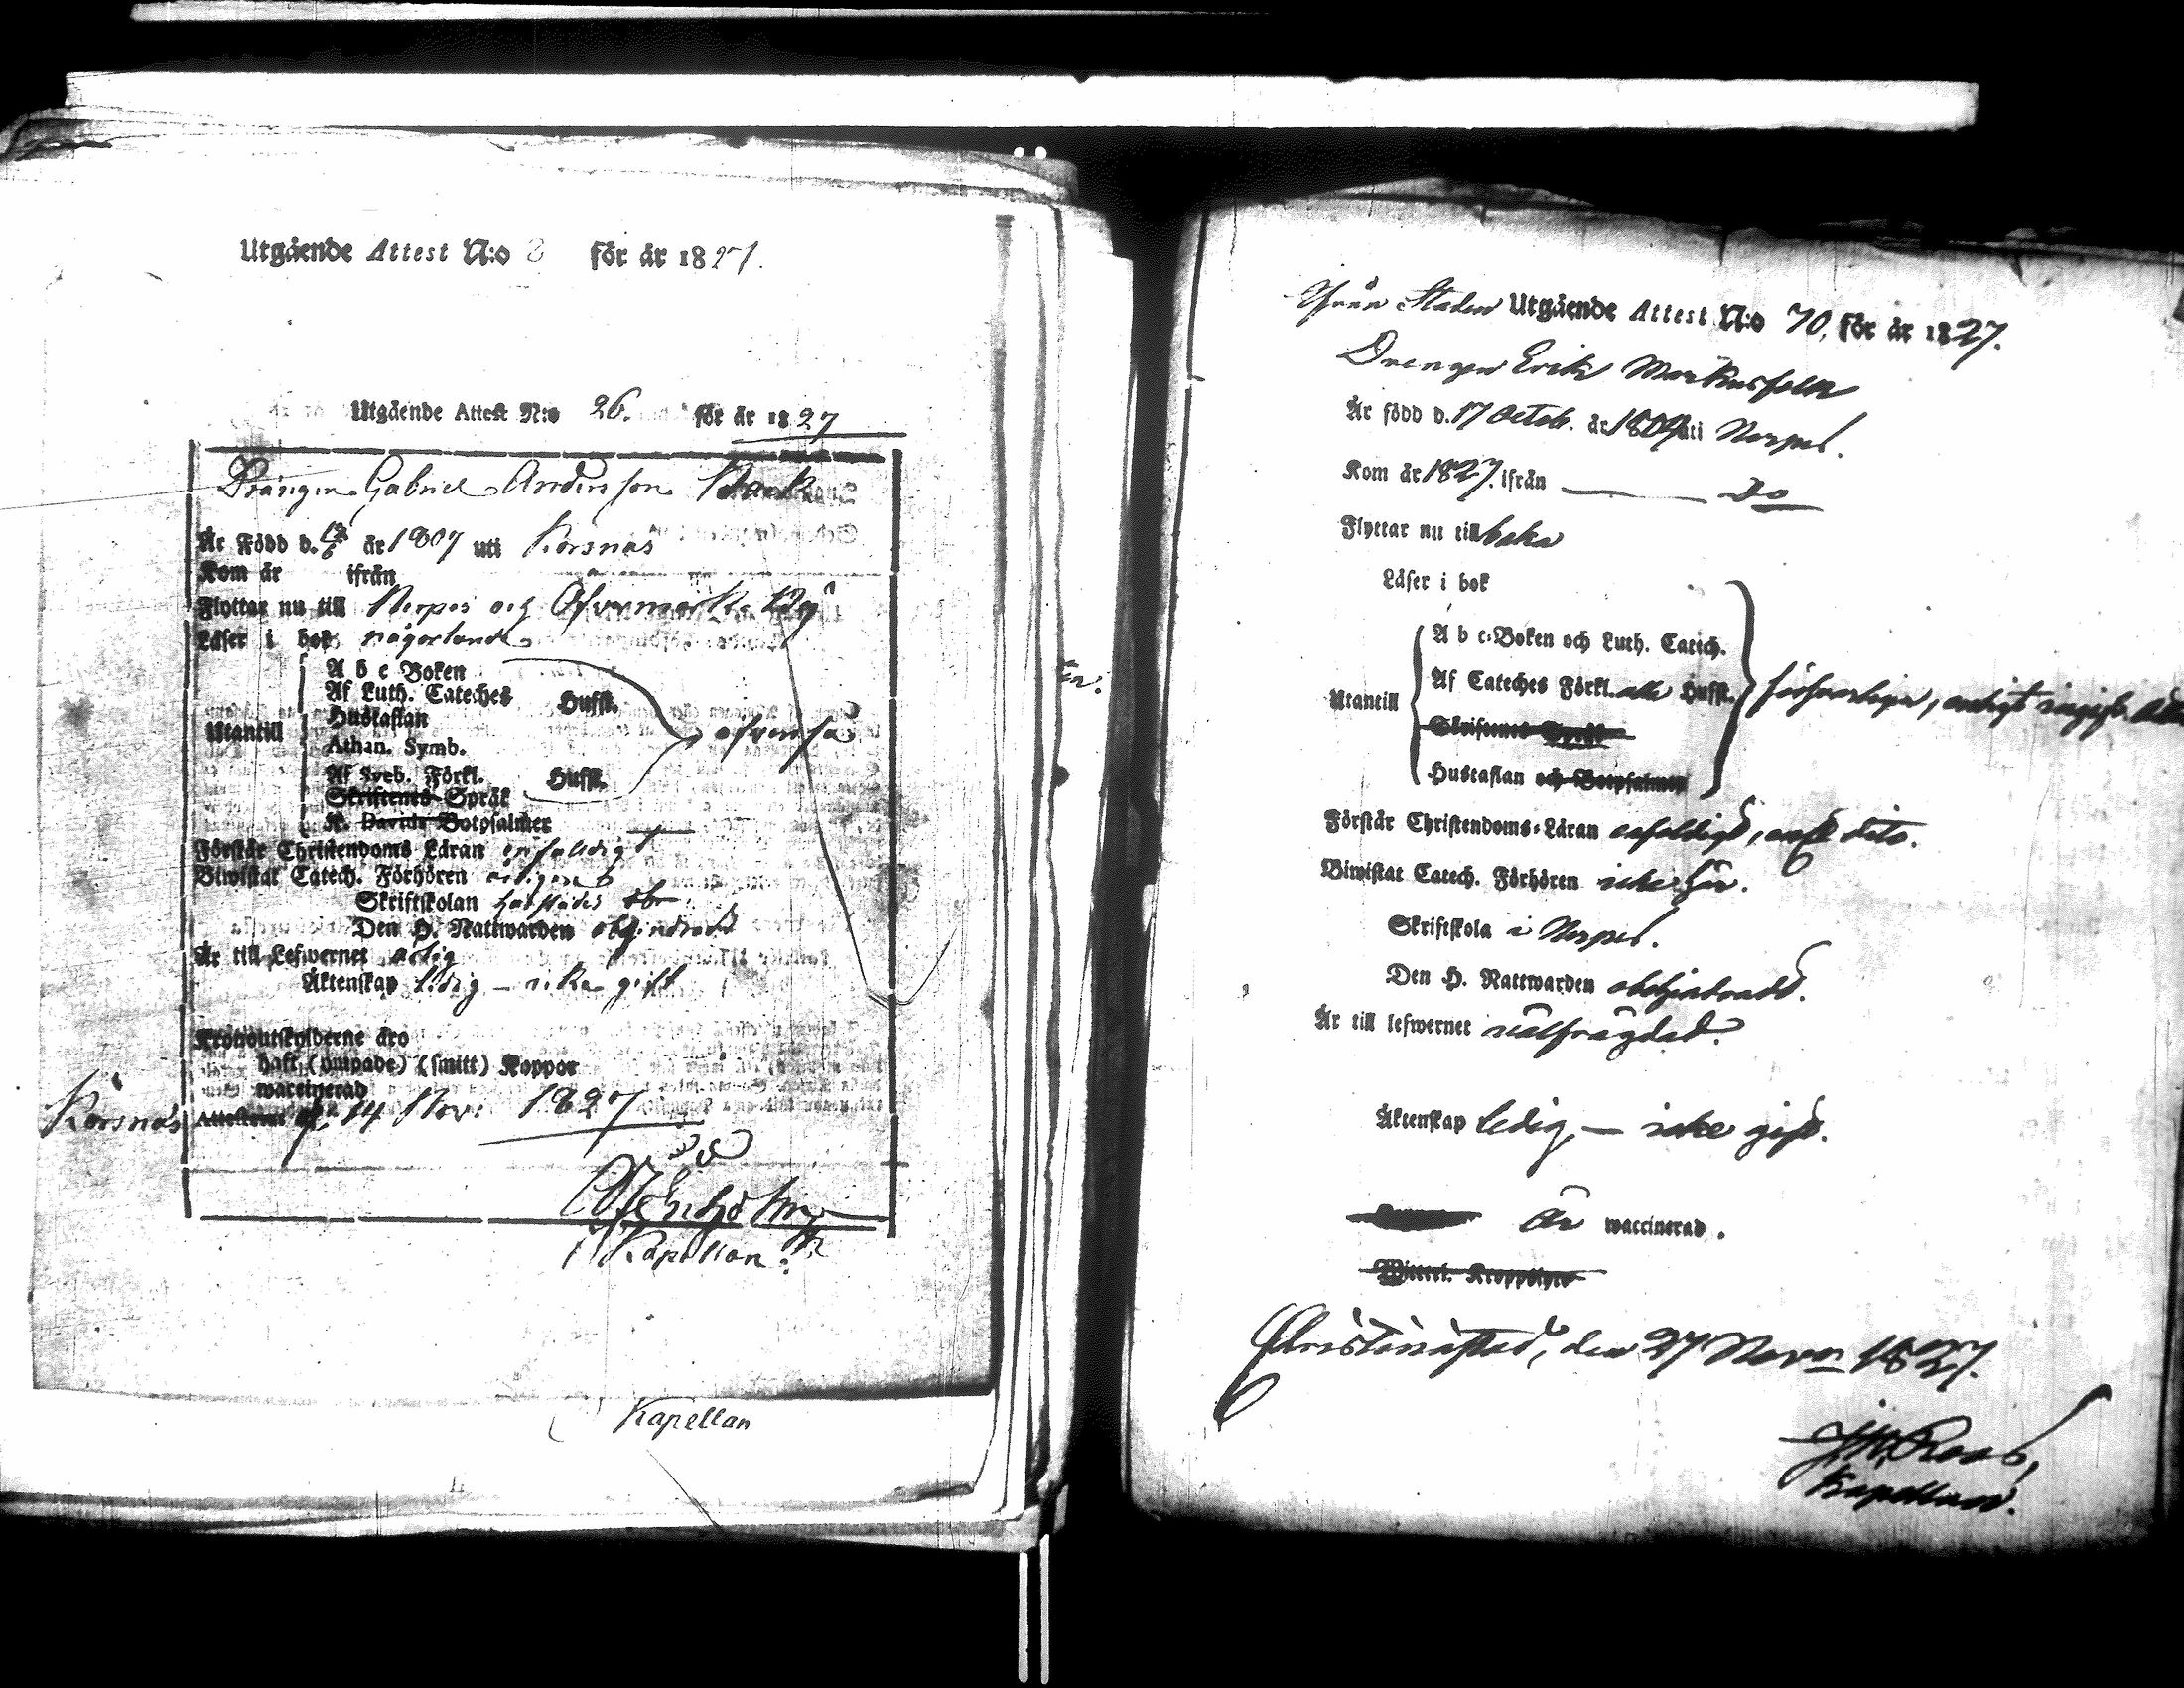 Utgående Attest N:o 8 för år 1827.
Utgående Attest N:o 26. för år 1827
Drängen Gabriel Andersson
Är Född d. år 1807 uti Korsnäs
Kom år ifrån
Flyttar nu till Nerpes och Öfvermark By
Läser i bok någorlunda
A b c Boken
Af Luth. Cateches Hufst.
Hustaflan
Utantill
Athan. Symb. äfven så
Af Sveb. Förkl. Hufst.
Skriftenes Språk
K. Davids Botpsalmer
Förstår Christendoms Läran enfaldigt
Biwistat Catech. Förhören
Skriftskolan
Den H. Nattwarden obehindrad
Är till Lefwernet
Äktenskap ledig – icke gift
Kronoutskylderne äro
haft (ympade) (smitt) Koppor
waccinerad
Korsnäs Attesterat d. 14 Nov: 1827
Kapellan
Kapellan
Ifrån Staden Utgående Attest N:o 70, för år 1827.
Drengen Erik Markusson
Är född d. 17 Octob. år 1804 uti Nerpes.
Kom år 1827. ifrån — Do
Flyttar nu tillbaka
Läser i bok
A b c-Boken och Luth. Catech.
Af Cateches Förkl. alla Hufst.
Utantill försvarligen,
Skriftenes Språk
Hustaflan och Botpsalmer
Förstår Christendoms-Läran enfaldigt, dito.
Biwistat Catech. Förhören icke här.
Skriftskola i Nerpes.
Den H. Nattwarden obehindradt.
Är till lefwernet välfrägdad.
Äktenskap ledig, — icke gift.
är waccinerad.
Christinestad, den 27 Novr 1827.
Kapellan.